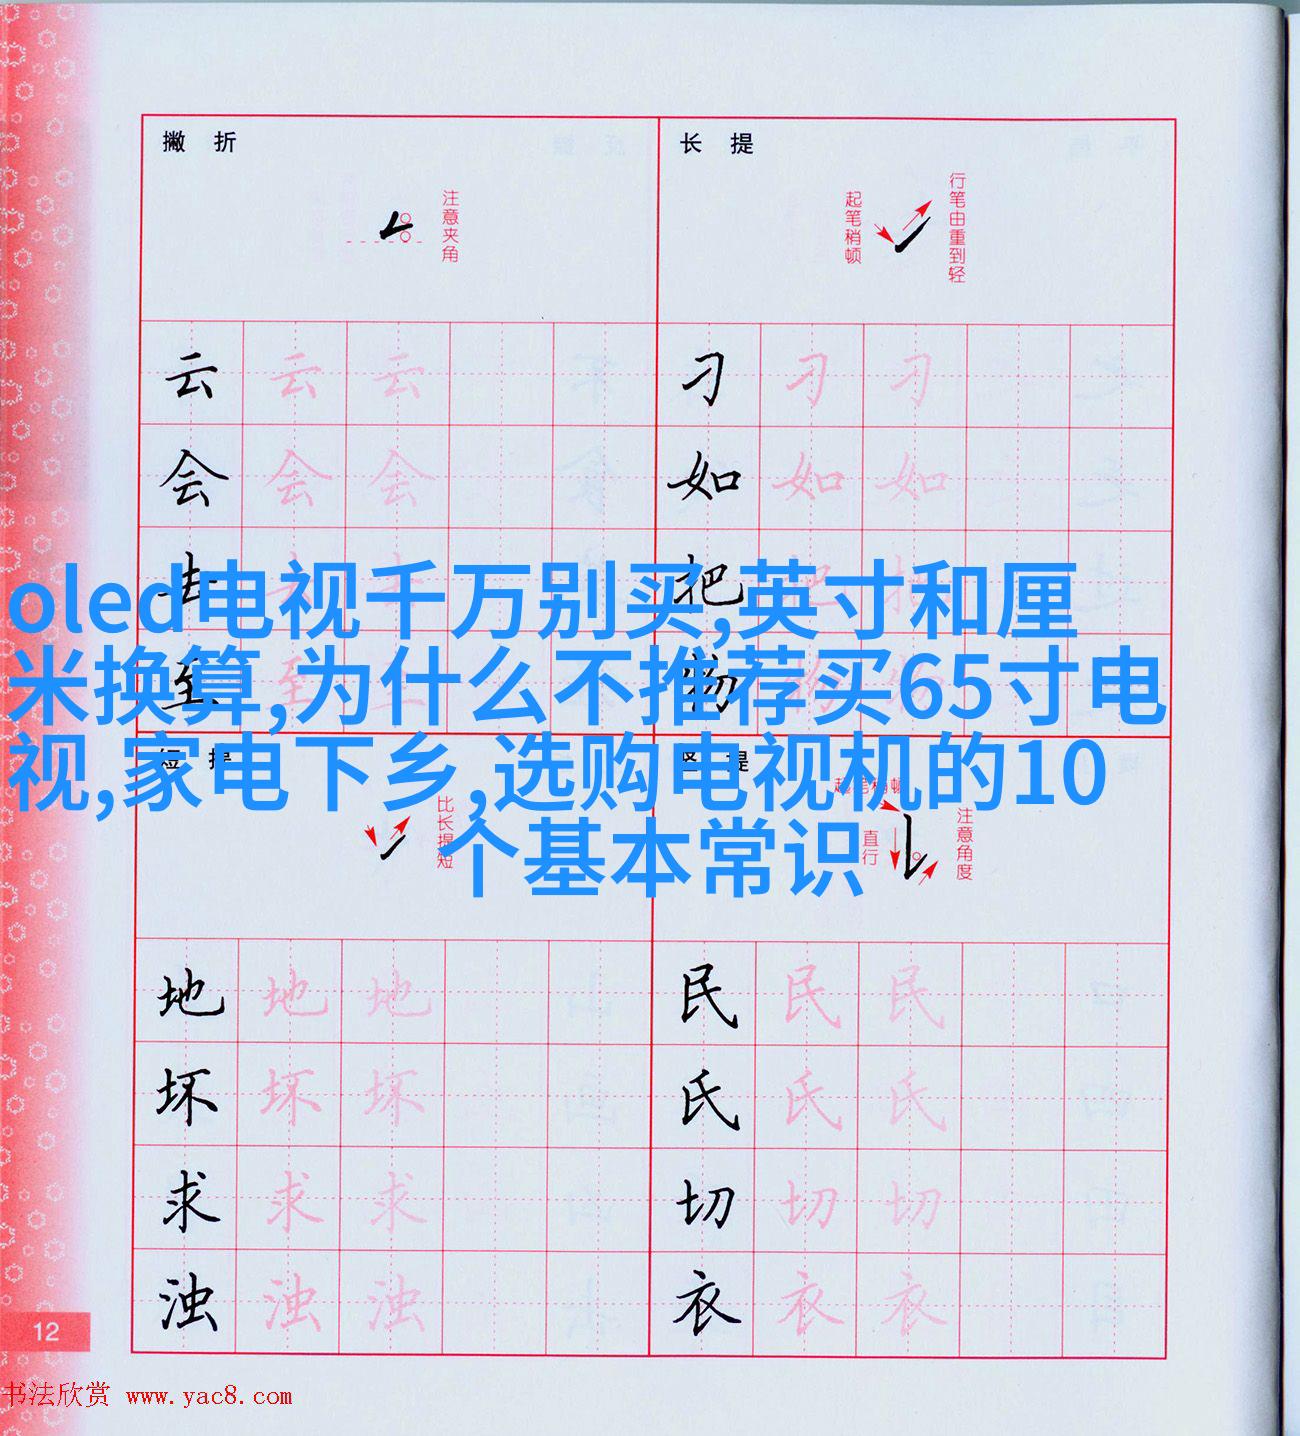 撇 折
注意夹角
长 提
起笔稍顿
行笔由重到轻
云 云 云
刁 刁 刁
会 会 会
如 如 如
去 去 去
把 把 把
至 至 至
oled电视千万别买,英寸和厘
米换算,为什么不推荐买65寸电
视,家电下乡,选购电视机的10
个基本常识
短 提
比长提短
竖 提
起笔稍顿
直行
注意角度
地 地 地
民 民 民
坏 坏 坏
氏 氏 氏
求 求 求
切 切 切
浊 浊 浊
衣 衣 衣
12
书法欣赏 www.yac8.com